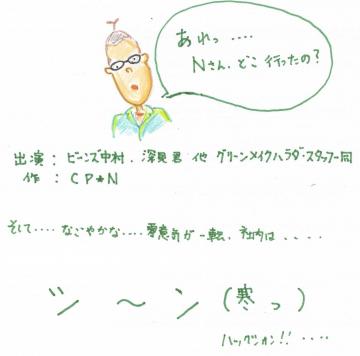 あれっ‥‥
Nさん、どこ行ったの?
出演 : ビーンズ中村、深見君 他 グリーンメイクハラダ・スタッフ一同
作 : CP★N
そして‥‥なごやかな‥‥雰意気が一転、社内は‥‥
ツ 〜 ン (寒っ)
ハックション!!‥‥